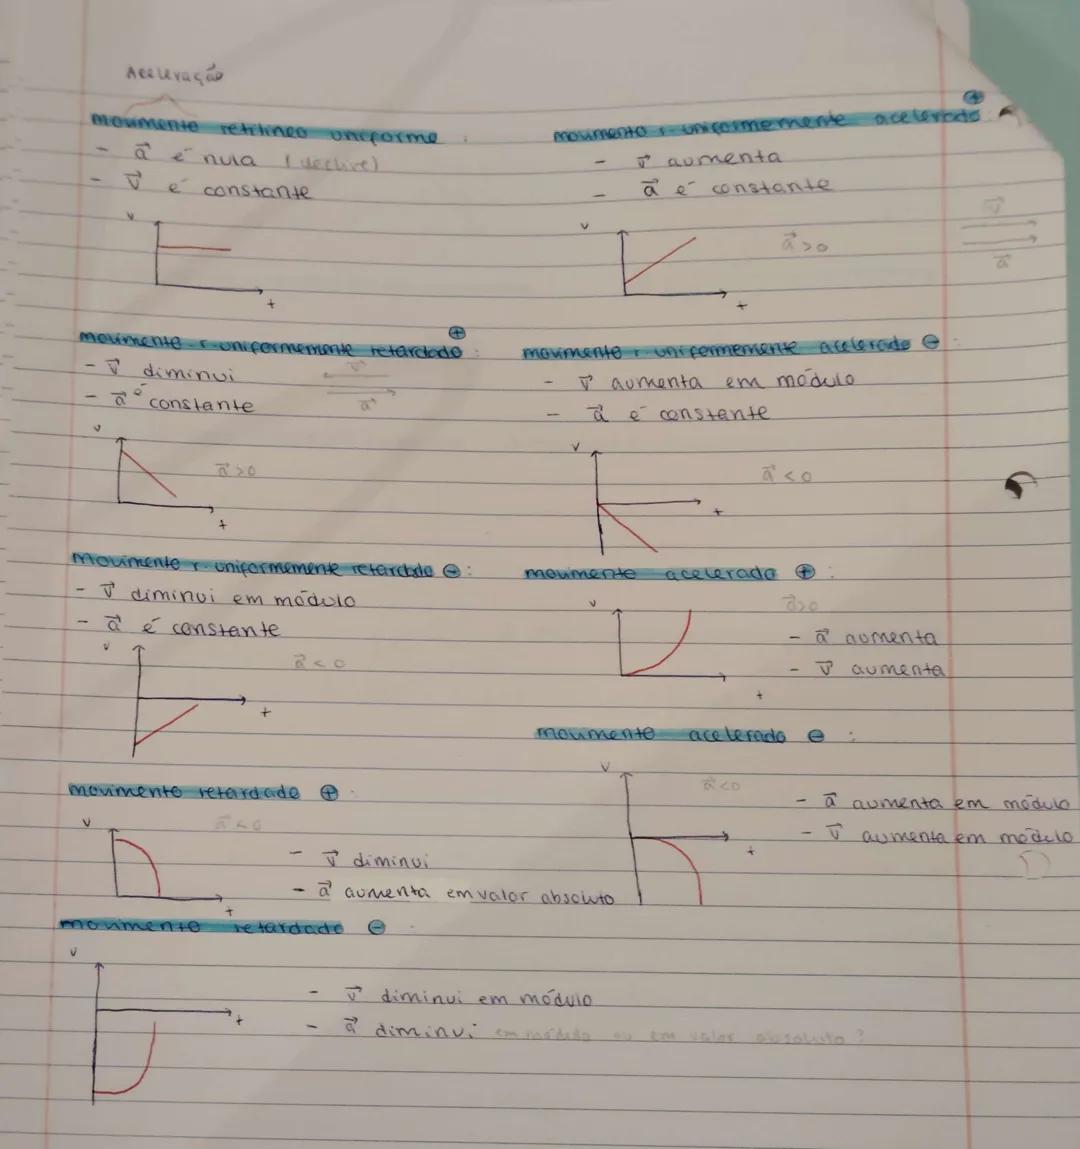 Aceleração
movimento retilíneo uniforme :
- a⃗ é nula (declive)
- v⃗ é constante
v
t
movimento r. uniformemente acelerado ⊕
- v⃗ aumenta
- a⃗ é constante
v
a⃗ >0
v⃗
a⃗
t
movimento r. uniformemente retardado ⊕ :
- v⃗ diminui
- a⃗ é constante
v⃗
a⃗
v
a⃗ >0
t
movimento r. uniformemente acelerado ⊖ :
- v⃗ aumenta em módulo
- a⃗ é constante
v
a⃗ <0
t
movimento r. uniformemente retardado ⊖ :
- v⃗ diminui em módulo
- a⃗ é constante
v
a⃗ <0
t
movimento acelerado ⊕ :
v
a⃗>0
- a⃗ aumenta
- v⃗ aumenta
t
movimento acelerado ⊖ :
v
a⃗<0
- a⃗ aumenta em módulo
- v⃗ aumenta em módulo
t
movimento retardado ⊕ :
v
a⃗ <0
- v⃗ diminui
- a⃗ aumenta em valor absoluto
t
movimento retardado ⊖ :
v
- v⃗ diminui em módulo
t
- a⃗ diminui em módulo ou em valor absoluto ?